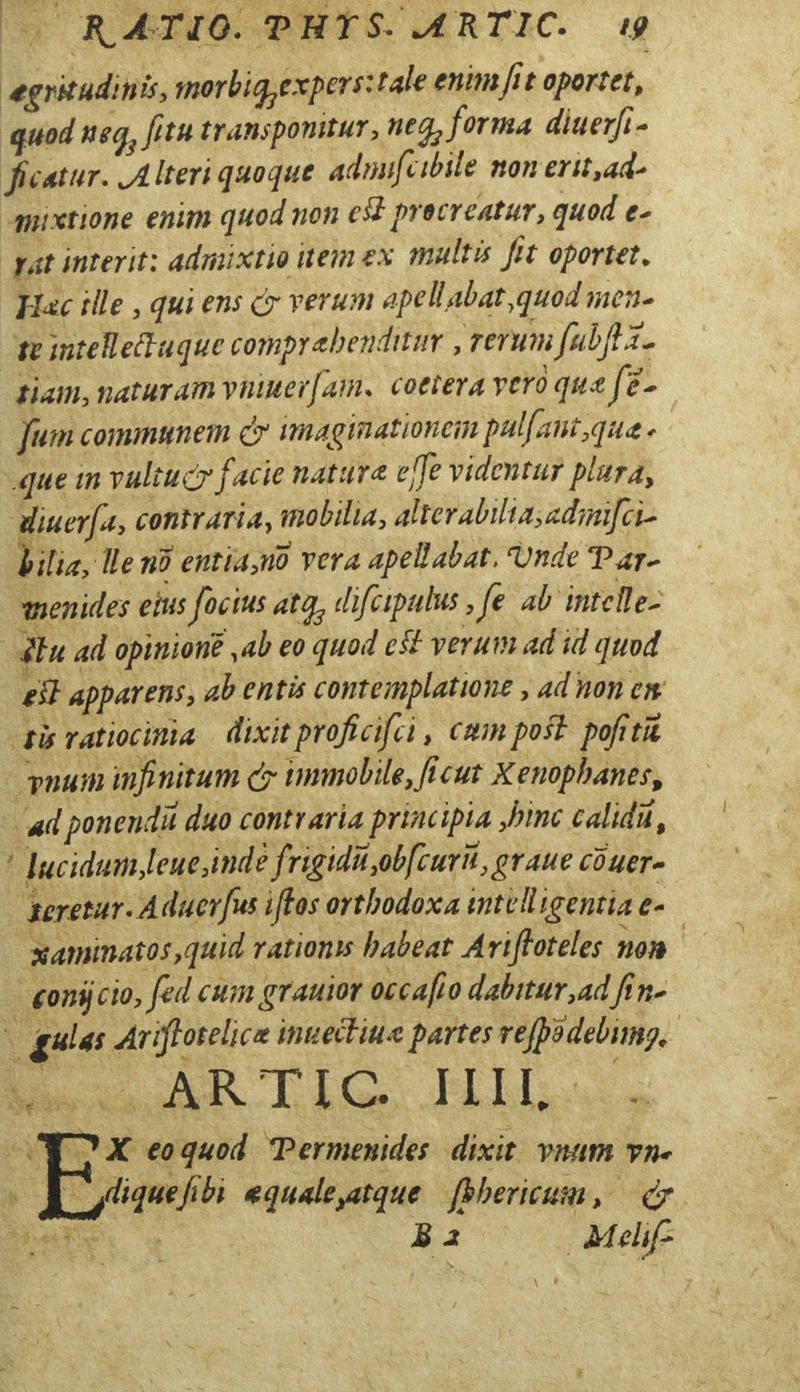 RATIO. PHYS. ARTIC. 19
ægritudinis, morbiq; expers: tale enim ſit oportet,
quod neq; ſitu transponitur, neq; forma diuerſi-
ficatur. Alteri quoque admiſcibile non erit, ad-
mixtione enim quod non eſt procreatur, quod e-
rat interit: admixtio item ex multis ſit oportet.
Hæc ille , qui ens & verum apellabat, quod men-
te intellectuque compræhenditur , rerum ſubſtā-
tiam, naturam vniuerſam. coetera verò quæ ſē-
ſum communem & imaginationem pulſant, quæ-
que in vultu & facie naturæ eſſe videntur plura,
diuerſa, contraria, mobilia, alterabilia, admiſci-
bilia, lle nō entia, nō vera apellabat. Vnde Par-
menides eius ſocius atq; diſcipulus , ſe ab intelle-
ctu ad opinionē , ab eo quod eſt verum ad id quod
eſt apparens, ab entis contemplatione , ad non en
tis ratiocinia dixit proficiſci , cum poſt poſitū
vnum infinitum & immobile, ſicut Xenophanes,
ad ponendū duo contraria principia , hinc calidū,
lucidum, leue, indè frigidū, obſcurū, graue cōuer-
teretur. Aduerſus iſtos orthodoxa intelligentia e-
xaminatos, quid rationis habeat Ariſtoteles non
conijcio, ſed cum grauior occaſio dabitur, ad ſin-
gulas Ariſtotelicæ inuectiuæ partes reſpōdebimꝰ.
ARTIC. IIII.
EX eo quod Permenides dixit vnum vn-
dique ſibi æquale, atque ſphericum , &
B 2 Meliſ-